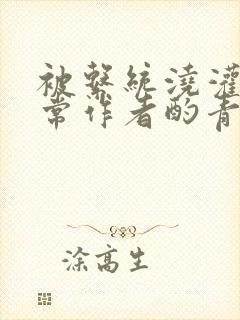 被繫統澆灌
常作者酌青
涂高生